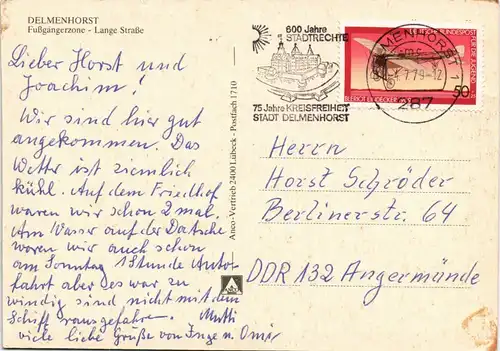 DELMENHORST
Fußgängerzone - Lange Straße
Lieber Horst und
Joachim!
Wir sind hier gut
angekommen. Das
Wetter ist ziemlich
kühl. Auf dem Friedhof
waren wir schon 2 mal.
Am Wasser auf der Datsche
waren wir auch schon
am Sonntag 1 Stunde Auto-
fahrt aber es war zu
windig sind nicht mit dem
Schiff rausgefahren. Mutti
viele liebe Grüße von Inge u. Omi
Anco-Vertrieb 2400 Lübeck - Postfach 1710
ANCO
600 Jahre
STADTRECHTE
75 Jahre KREISFREIHEIT
STADT DELMENHORST
DELMENHORST 1
7.79-12
287
DEUTSCHE BUNDESPOST
FÜR DIE JUGEND
BLERIOT EINDECKER
50
Herrn
Horst Schröder
Berlinerstr. 64
DDR 132 Angermünde